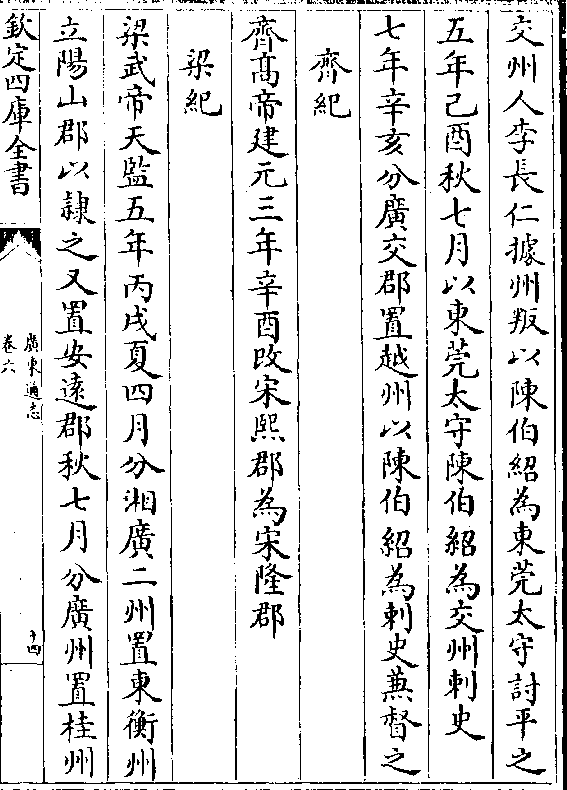 交州人李長仁據州叛以陳伯紹為東莞太守討平之
五年己酉秋七月以東莞太守陳伯紹為交州刺史
七年辛亥分廣交郡置越州以陳伯紹為刺史兼督之
齊紀
齊高帝建元三年辛酉改宋熙郡為宋隆郡
梁紀
梁武帝天監五年丙戌夏四月分湘廣二州置東衡州
立陽山郡以隸之又置安遠郡秋七月分廣州置桂州
欽定四庫全書
廣東通志
卷六
十四